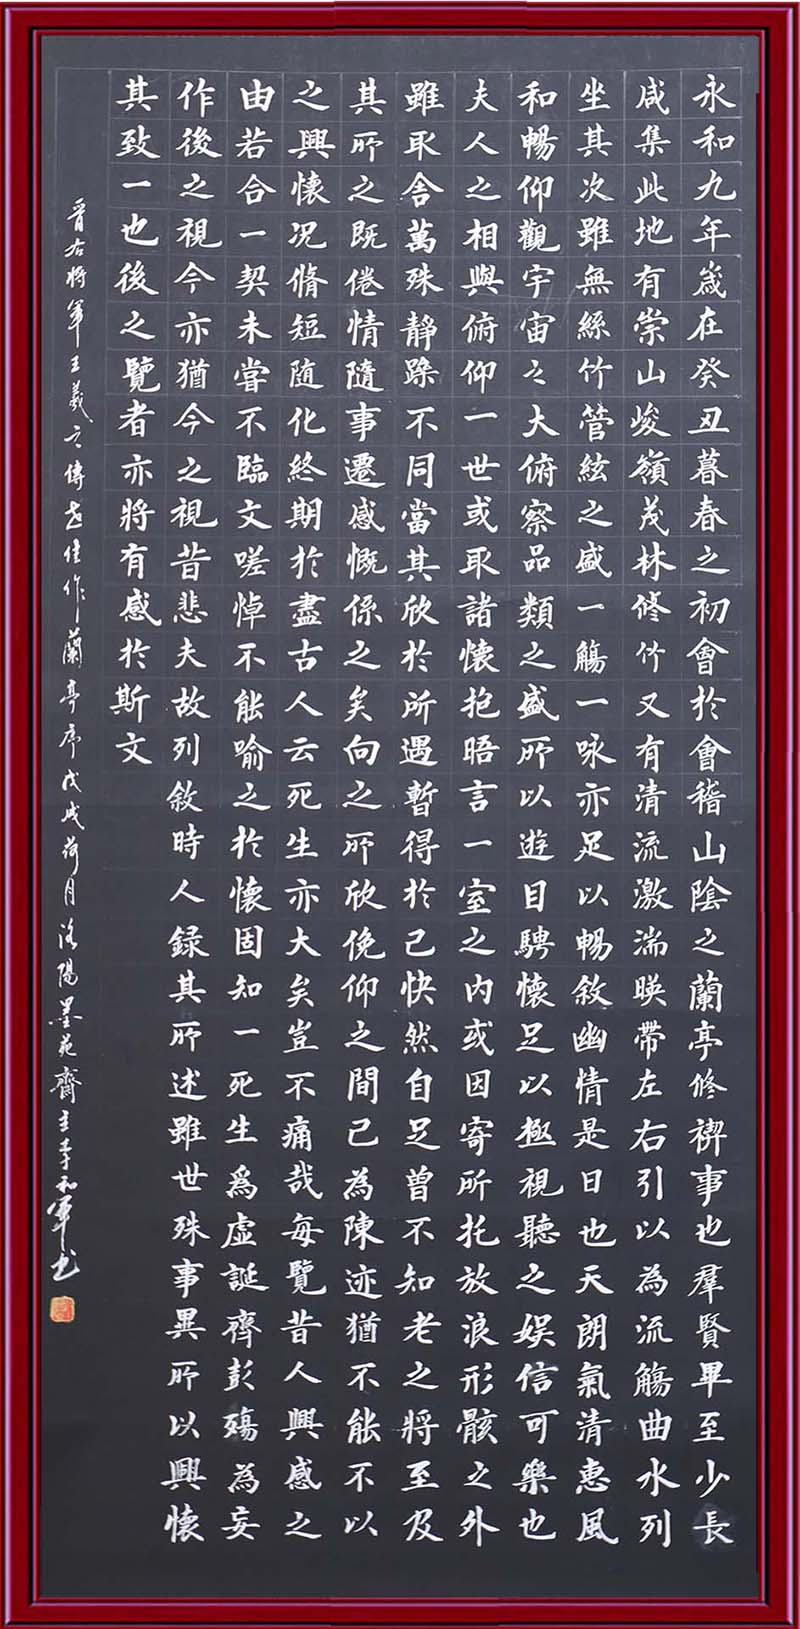 永和九年歲在癸丑暮春之初會於會稽山陰之蘭亭修禊事也羣賢畢至少長
咸集此地有崇山峻嶺茂林修竹又有清流激湍暎帶左右引以為流觴曲水列
坐其次雖無絲竹管絃之盛一觴一咏亦足以暢敘幽情是日也天朗氣清惠風
和暢仰觀宇宙之大俯察品類之盛所以遊目騁懷足以極視聽之娛信可樂也
夫人之相與俯仰一世或取諸懷抱晤言一室之內或因寄所托放浪形骸之外
雖取舍萬殊靜躁不同當其欣於所遇暫得於己快然自足曾不知老之將至及
其所之既倦情隨事遷感慨係之矣向之所欣俛仰之間已為陳迹猶不能不以
之興懷况脩短随化終期於盡古人云死生亦大矣豈不痛哉每覽昔人興感之
由若合一契未嘗不臨文嗟悼不能喻之於懷固知一死生爲虛誕齊彭殤為妄
作後之視今亦猶今之視昔悲夫故列敘時人録其所述雖世殊事異所以興懷
其致一也後之覽者亦將有感於斯文
晋右將軍王羲之傳世佳作蘭亭序戊戌荷月洛陽墨苑齋主李和軍书